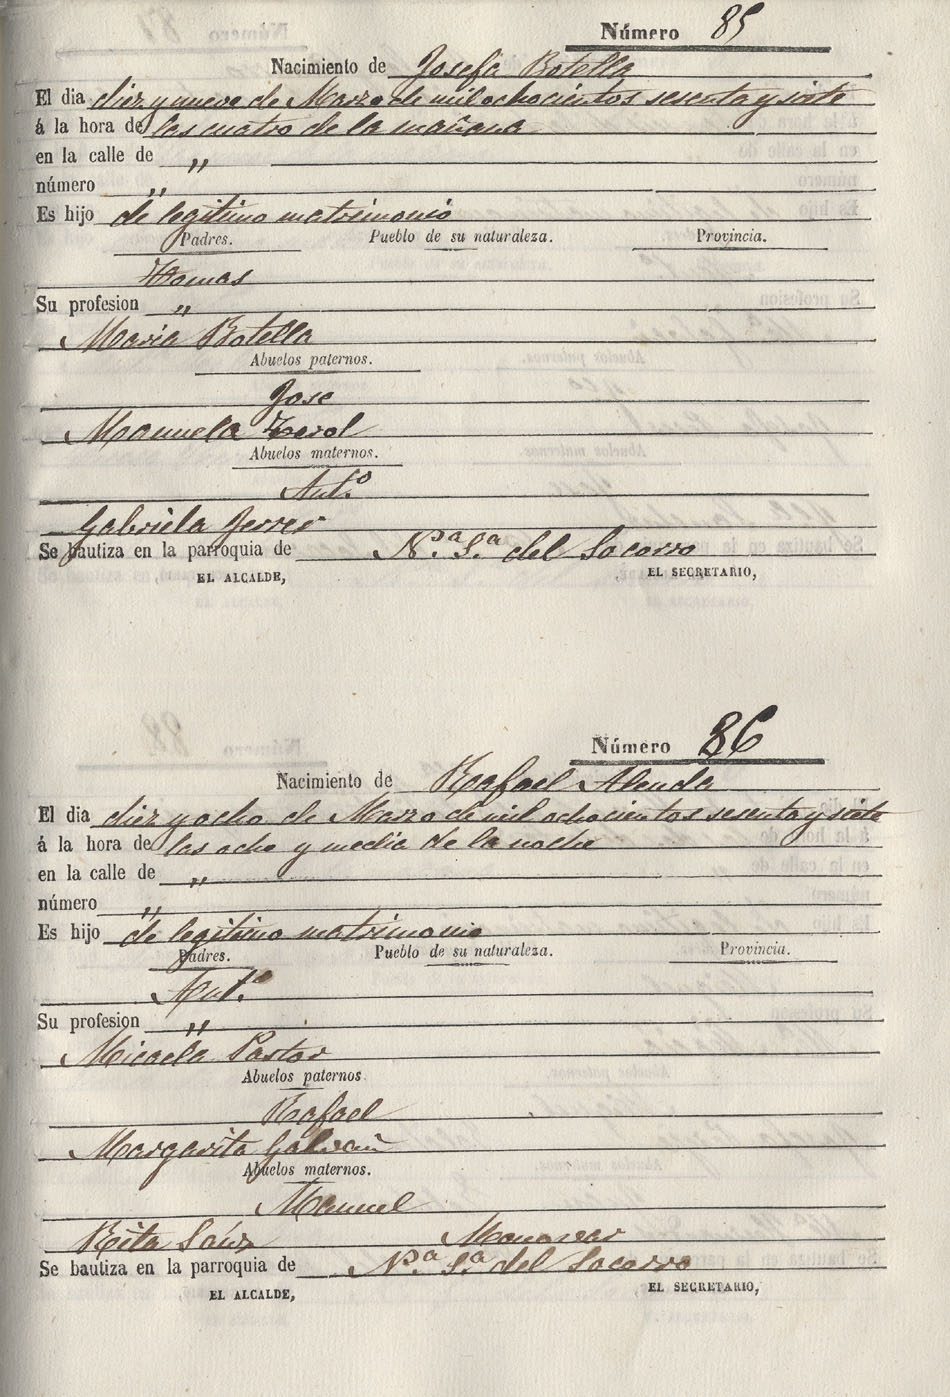 Número 85
Nacimiento de Josefa Botella
El dia diez y nueve de Marzo de mil ochocientos sesenta y siete
á la hora de las cuatro de la mañana
en la calle de „
número „
Es hijo de legitimo matrimonio
Padres. Pueblo de su naturaleza. Provincia.
Tomas
Su profesion „
Maria Botella
Abuelos paternos.
Jose
Manuela Terol
Abuelos maternos.
Ant.º
Gabriela Ferrer
Se bautiza en la parroquia de N.ª S.ª del Socorro
EL ALCALDE, EL SECRETARIO,
Número 86
Nacimiento de Rafael Alenda
El dia diez y ocho de Marzo de mil ochocientos sesenta y siete
á la hora de las ocho y media de la noche
en la calle de „
número „
Es hijo de legitimo matrimonio
Padres. Pueblo de su naturaleza. Provincia.
Ant.º
Su profesion „
Micaela Pastor
Abuelos paternos.
Rafael
Margarita Galvañ
Abuelos maternos.
Manuel
Rita Sanz Monovar
Se bautiza en la parroquia de N.ª S.ª del Socorro
EL ALCALDE, EL SECRETARIO,